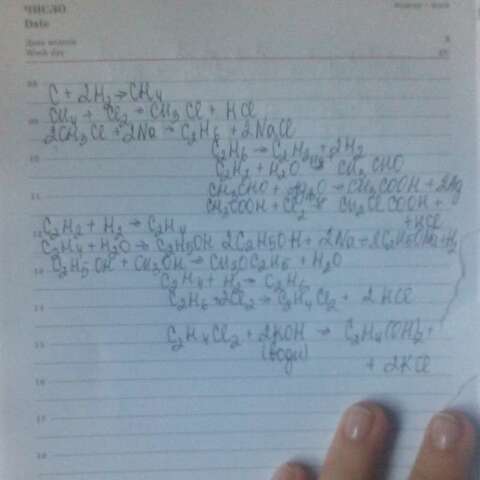 ЧИСЛО
Date
День недели
Week day
C + 2H2 → CH4
CH4 + Cl2 → CH3Cl + HCl
2CH3Cl + 2Na → C2H6 + 2NaCl
C2H6 → C2H2 + 2H2
C2H2 + H2O → CH3CHO
CH3CHO + → CH3COOH + 2Ag
CH3COOH + Cl2 → CH2ClCOOH +
+ HCl
C2H2 + H2 → C2H4
C2H4 + H2O → C2H5OH 2C2H5OH + 2Na → 2C2H5ONa + H2
C2H5OH + CH3OH → CH3OC2H5 + H2O
C2H4 + H2 → C2H6
C2H6 + 2Cl2 → C2H4Cl2 + 2HCl
C2H4Cl2 + 2KOH → C2H4(OH)2 +
(водн)
+ 2KCl
11
12
13
14
15
16
17
18